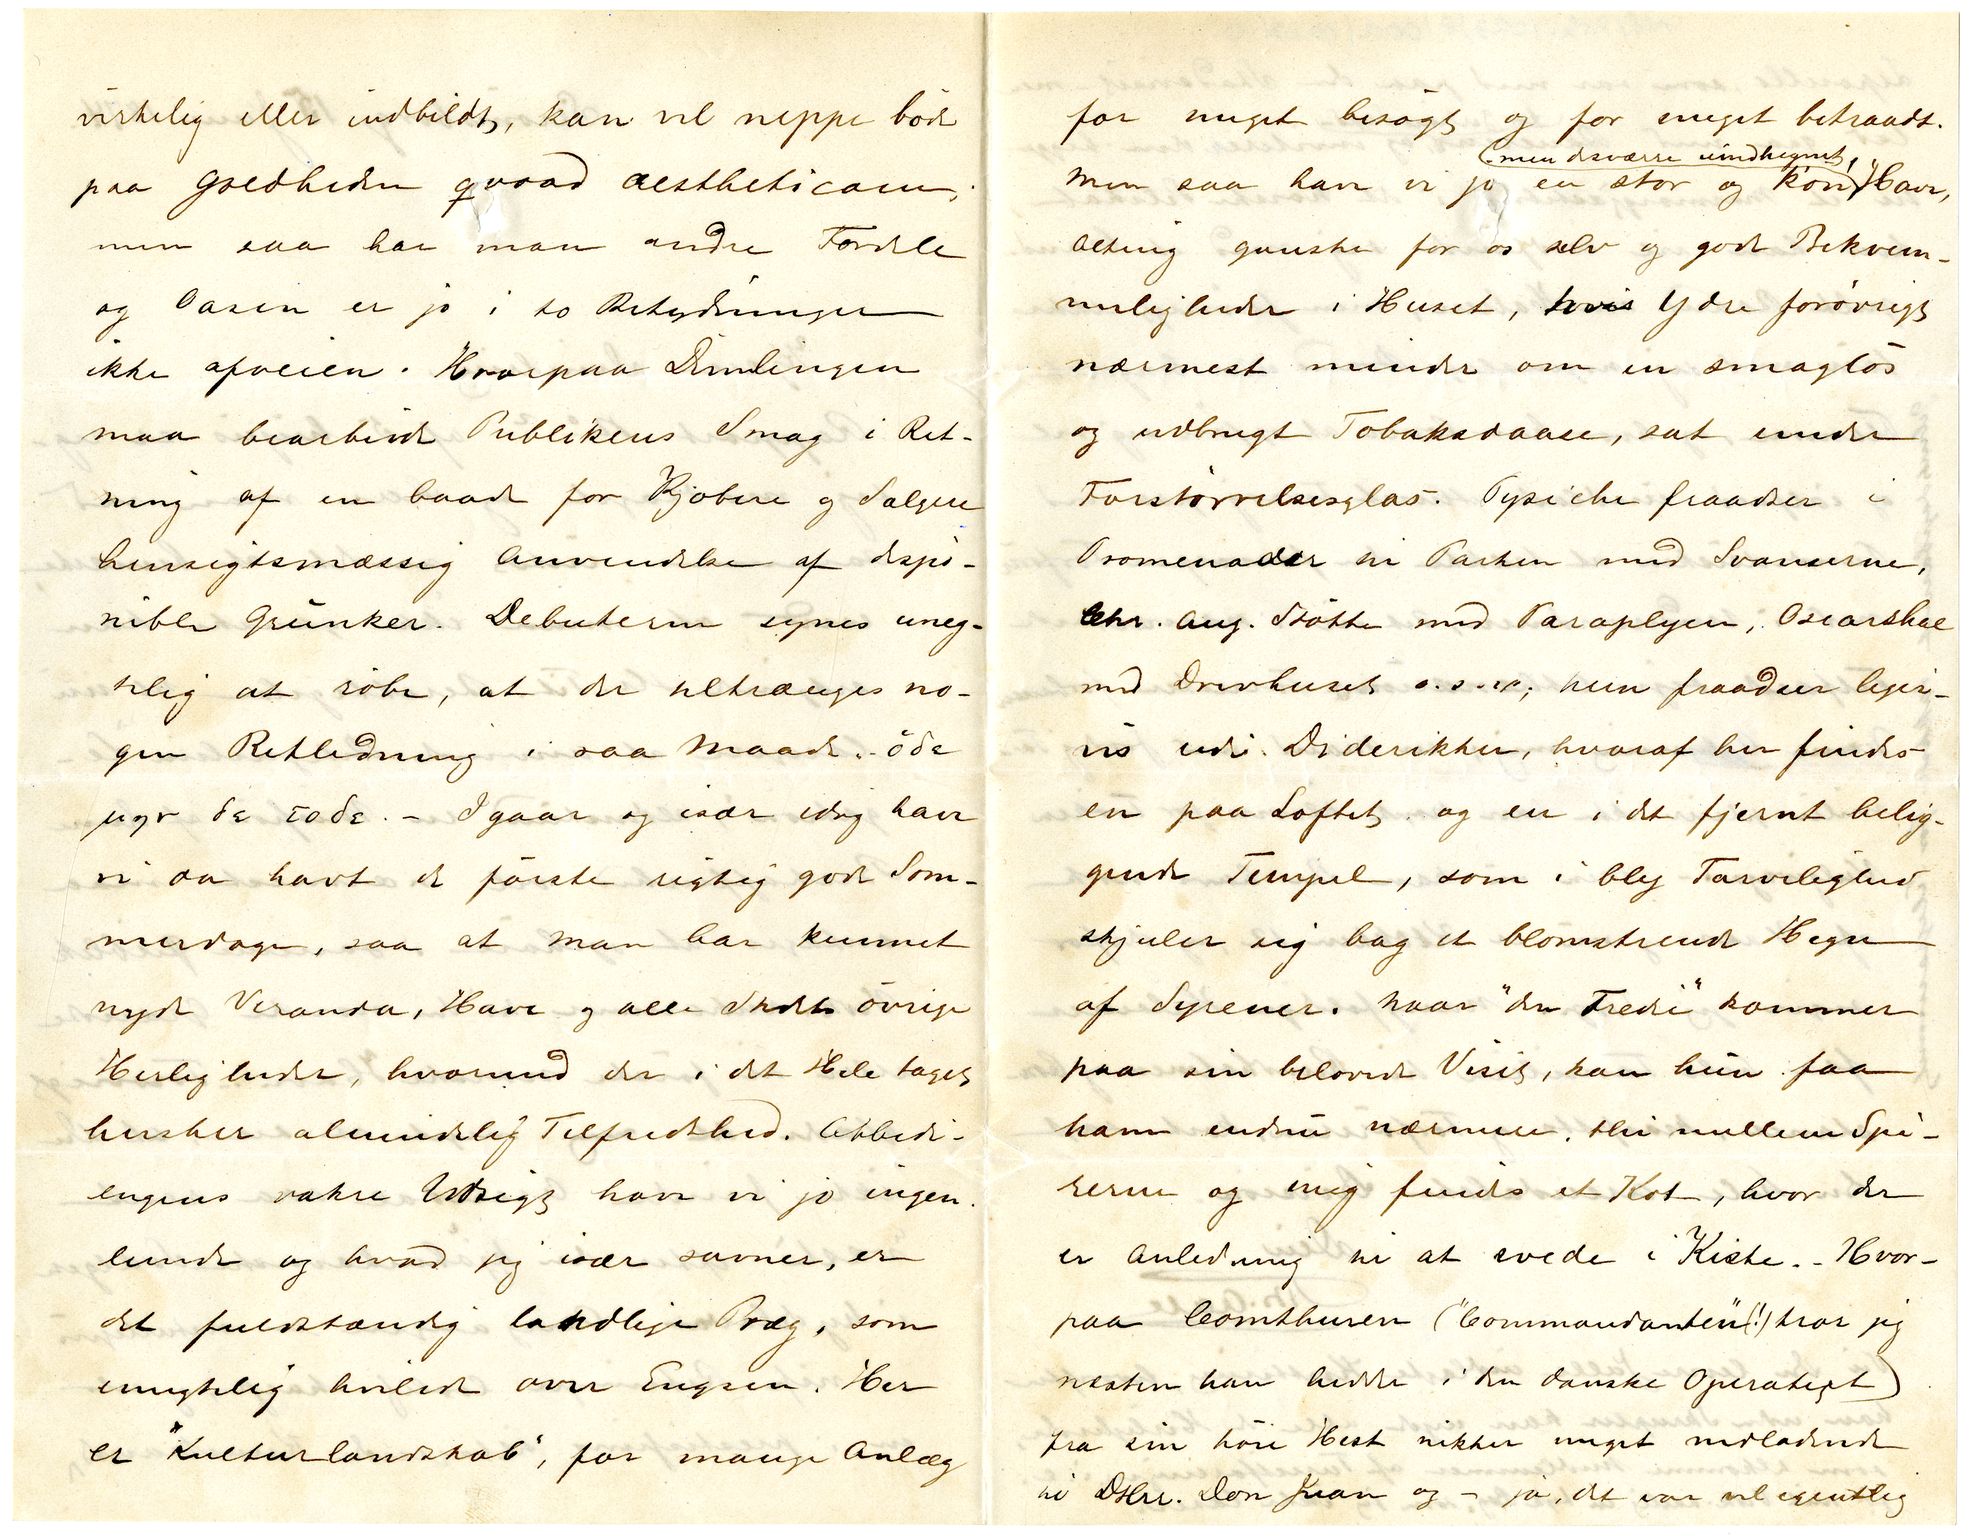 virkelig eller indbildt, kan vel neppe böde
paa Godheden qvoad aestheticam;
men saa har man andre Fordele
og Oasen er jo i to Betydninger
ikke afveien. Hvorpaa Dimlingen
maa bearbeide Publikens Smag i Ret-
ning af en baade for Kjøbere og Sælgere
hensigtsmæssig Anvendelse af dispo-
nible Grunker. Debuterne synes uneg-
telig at röbe, at der tiltrænges no-
gen Retledning i saa Maade. ὁδε
μεν δε τοδε. – Igaar og især idag have
vi da havt de förste rigtig gode Som-
merdage, saa at man har kunnet
nyde Veranda, Have og alle Stedets övrige
Herligheder, hvormed der i det Hele taget
hersker almindelig Tilfredshed. Abbedi-
engens vakre Udsigt have vi jo ingen-
lunde og hvad jeg især savner, er
det fuldstændig landlige Præg, som
unegtelig hvilede over Engen. Her
er "Kulturlandskab", for mange Anlæg
for meget besögt og for meget betraadt.
men desværre uindhegnet,
Men saa have vi jo en stor og kön Have,
alting ganske for os selv og gode Bekvem-
meligheder i Huset, hvis Ydre forövrigt
nærmest minder om en smaglös
og udbrugt Tobaksdaase, sat under
Forstörrelsesglas. Psyche fraadser i
Promenader til Parken med Svanerne,
Chr. Aug. Stötte med Paraplyen, Oscarshal
med Drivhuset o.s.v.; hun fraadser ligele-
vis udi Dideriker, hvoraf her findes
en paa Loftet og en i det fjernt belig-
gende Tempel, som i bly Tarvelighed
skjuler sig bag et blomstrende Hegn
af Syrener. Naar "den Tredie" kommer
paa sin belovede Visit, kan hun faa
ham endnu nærmere, thi mellem Spi-
rerne og mig findes et Kot, hvor der
er Anledning til at svede i Kiste. – Hvor-
paa Comthuren ("Commandanten"(!) tror jeg
næsten han hedder i den danske Operatext)
fra sin höie Hest nikker meget nedladende
til DHrr. Don Juan og – ja, det var vel egentlig